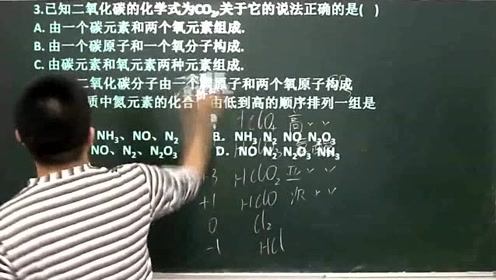 3.已知二氧化碳的化学式为CO₂,关于它的说法正确的是( )
A. 由一个碳元素和两个氧元素组成.
B. 由一个碳原子和一个氧分子构成.
C. 由碳元素和氧元素两种元素组成.
二氧化碳分子由一个碳原子和两个氧原子构成
质中氮元素的化合 由低到高的顺序排列一组是
NH₃、NO、N₂ B. NH₃ N₂ NO N₂O₃
NO、N₂、N₂O₃ D. NO N₂ N₂O₃ NH₃
高
+3 HClO₂ 亚 〃 〃
+1 HClO 次 〃 〃
0 Cl₂
-1 HCl